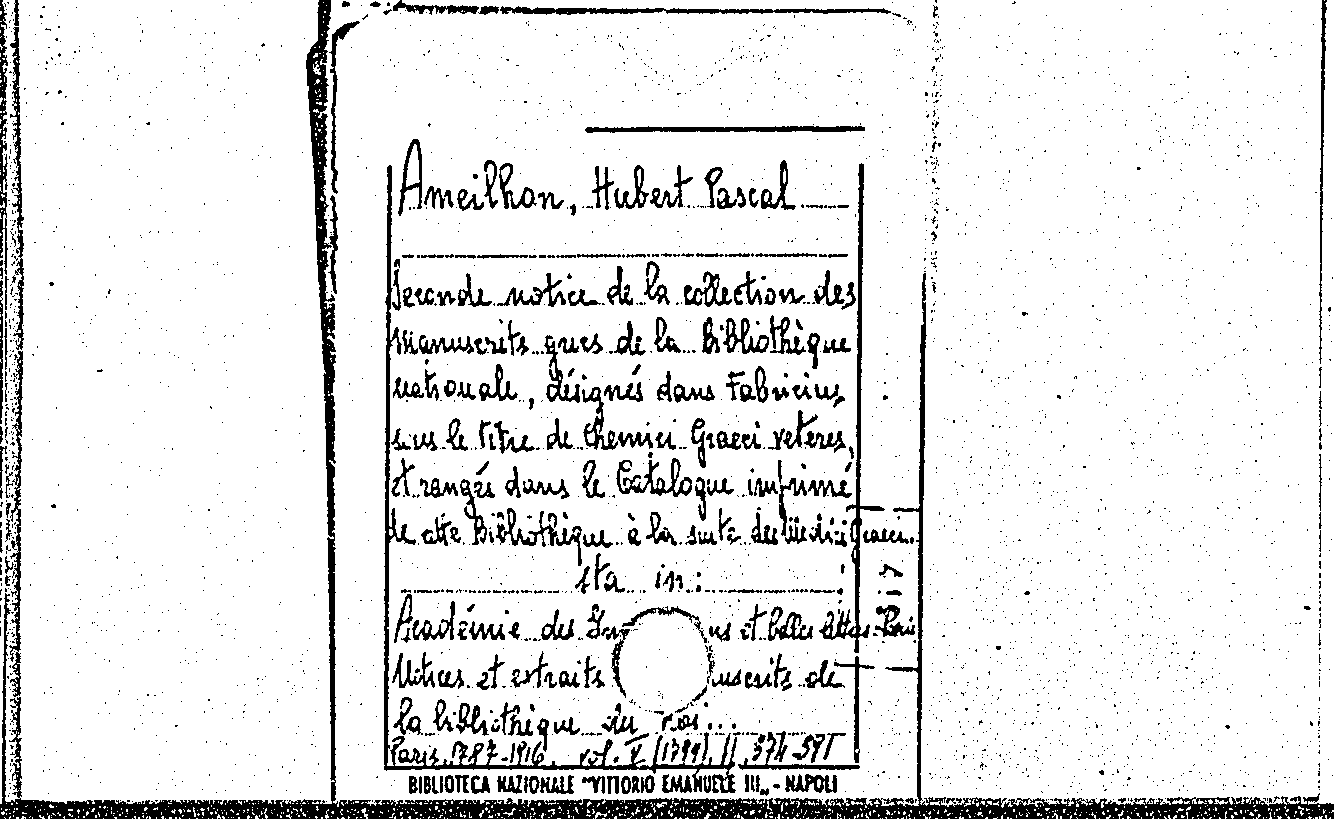 Ameilhon, Hubert Pascal
Seconde notice de la collection des
manuscrits grecs de la bibliothèque
nationale, désignés dans Fabricius,
sous le titre de Chemici Graeci veteres,
et rangés dans le Catalogue imprimé
de cette Bibliothèque à la suite des Medici Graeci.
sta in:
Académie des In ns et belles lettres-Paris
Notices et extraits uscrits de
la bibliothèque du roi...
Paris, 1787-1916. vol. V (1799), 374-391
BIBLIOTECA NAZIONALE "VITTORIO EMANUELE III„ - NAPOLI